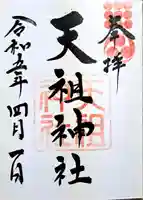 奉拝
天祖神社
令和五年四月一日